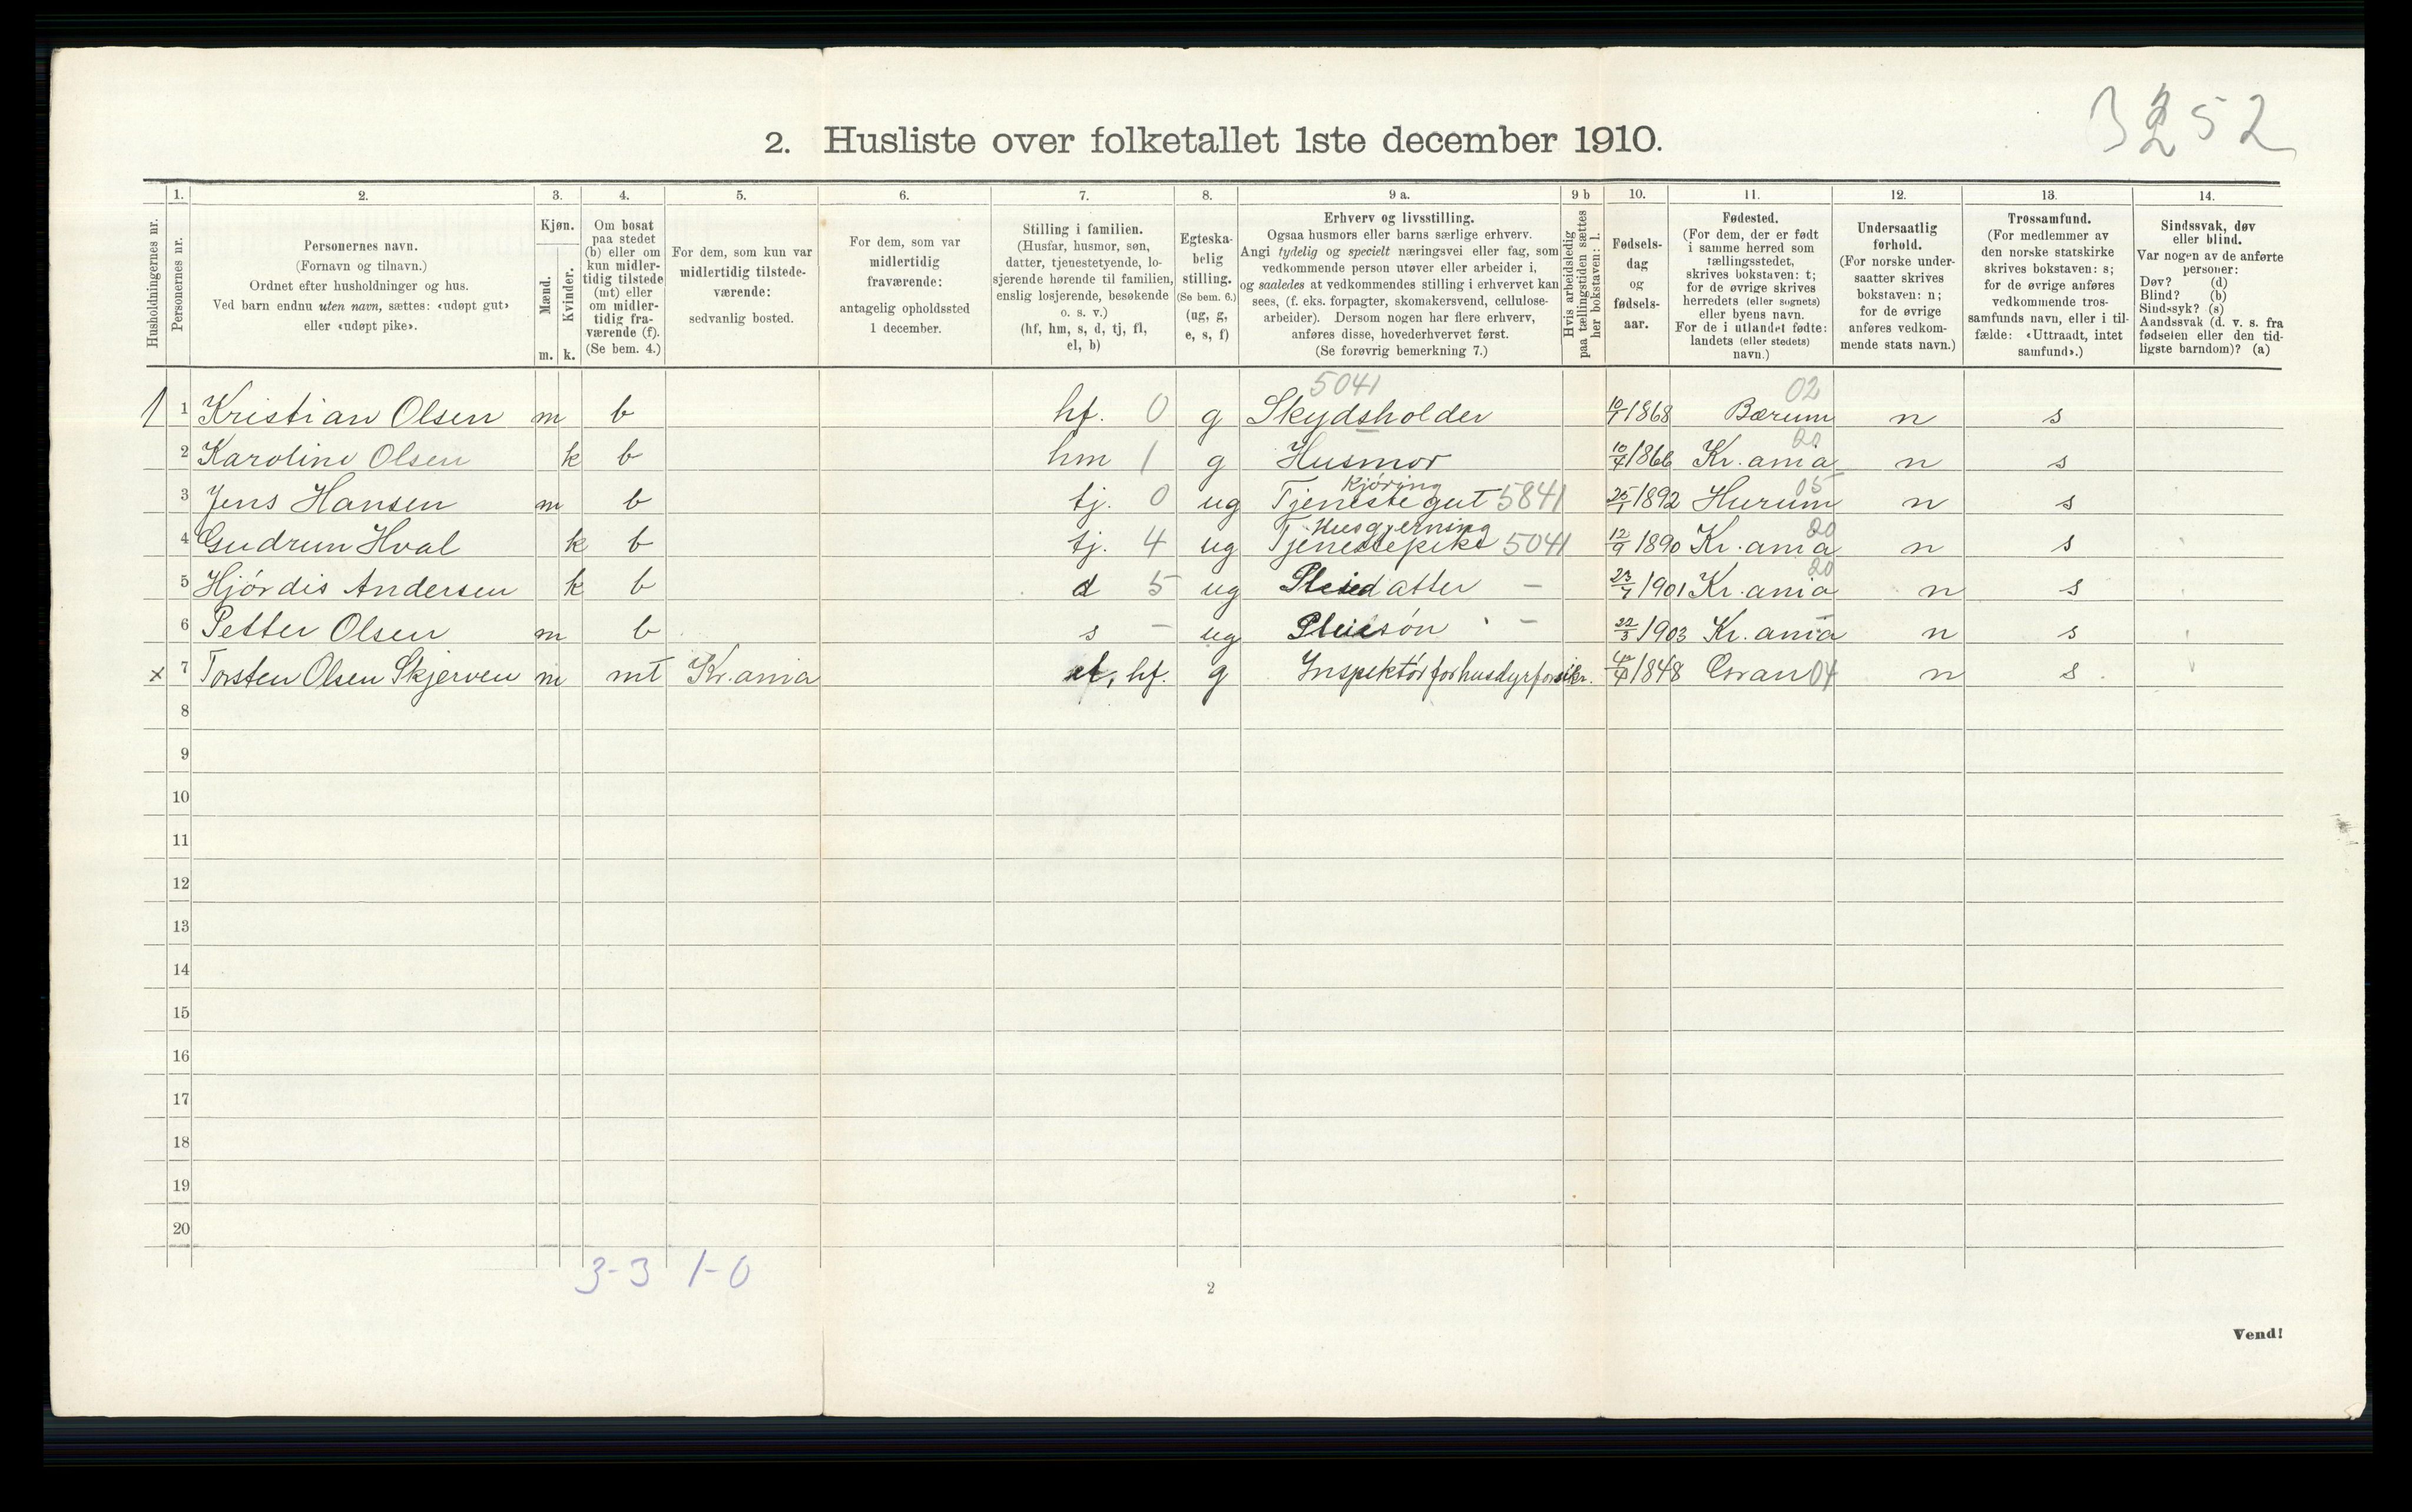 3252
2. Husliste over folketallet 1ste december 1910.
Husholdningernes nr.
1.
Personernes nr.
2.
Personernes navn.
(Fornavn og tilnavn.)
Ordnet efter husholdninger og hus.
Ved barn endnu uten navn, sættes: «udøpt gut»
eller «udøpt pike».
3.
Kjøn.
Mænd.
Kvinder.
m. k.
4.
Om bosat
paa stedet
(b) eller om
kun midler-
tidig tilstede
(mt) eller
om midler-
tidig fra-
værende (f).
(Se bem. 4.)
5.
For dem, som kun var
midlertidig tilstede-
værende:
sedvanlig bosted.
6.
For dem, som var
midlertidig
fraværende:
antagelig opholdssted
1 december.
7.
Stilling i familien.
(Husfar, husmor, søn,
datter, tjenestetyende, lo-
sjerende hørende til familien,
enslig losjerende, besøkende
o. s. v.)
(hf, hm, s, d, tj, fl,
el, b)
8.
Egteska-
belig
stilling.
(Se bem. 6.)
(ug, g,
e, s, f)
9 a.
Erhverv og livsstilling.
Ogsaa husmors eller barns særlige erhverv.
Angi tydelig og specielt næringsvei eller fag, som
vedkommende person utøver eller arbeider i,
og saaledes at vedkommendes stilling i erhvervet kan
sees, (f. eks. forpagter, skomakersvend, cellulose-
arbeider). Dersom nogen har flere erhverv,
anføres disse, hovederhvervet først.
(Se forøvrig bemerkning 7.)
9 b
Hvis arbeidsledig
paa tællingstiden sættes
her bokstaven: l.
10.
Fødsels-
dag
og
fødsels-
aar.
11.
Fødested.
(For dem, der er født
i samme herred som
tællingsstedet,
skrives bokstaven: t;
for de øvrige skrives
herredets (eller sognets)
eller byens navn.
For de i utlandet fødte:
landets (eller stedets)
navn.)
12.
Undersaatlig
forhold.
(For norske under-
saatter skrives
bokstaven: n;
for de øvrige
anføres vedkom-
mende stats navn.)
13.
Trossamfund.
(For medlemmer av
den norske statskirke
skrives bokstaven: s;
for de øvrige anføres
vedkommende tros-
samfunds navn, eller i til-
fælde: «Uttraadt, intet
samfund».)
14.
Sindssvak, døv
eller blind.
Var nogen av de anførte
personer:
Døv? (d)
Blind? (b)
Sindssyk? (s)
Aandssvak (d. v. s. fra
fødselen eller den tid-
ligste barndom)? (a)
5041 02
1 1 Kristian Olsen m b hf. 0 g Skydsholder 10/1 1868 Bærum n s
20
2 Karoline Olsen k b hm 1 g Husmor 10/7 1866 Kr.ania n s
Kjøring 05
3 Jens Hansen m b tj. 0 ug Tjenestegut 5841 25/1 1892 Hurum n s
Husgjerning 20
4 Gudrun Hval k b tj. 4 ug Tjenestepike 5041 12/9 1890 Kr.ania n s
20
5 Hjördis Andersen k b d 5 ug Pleiedatter - 23/7 1901 Kr.ania n s
6 Petter Olsen m b s - ug Pleiesön - 22/3 1903 Kr.ania n s
x 7 Torsten Olsen Skjerven m mt Kr.ania hf. g Inspektör for husdyrforsikr. 1848 Gran 04 n s
8
9
10
11
12
13
14
15
16
17
18
19
20
3-3 1-0
2
Vend!